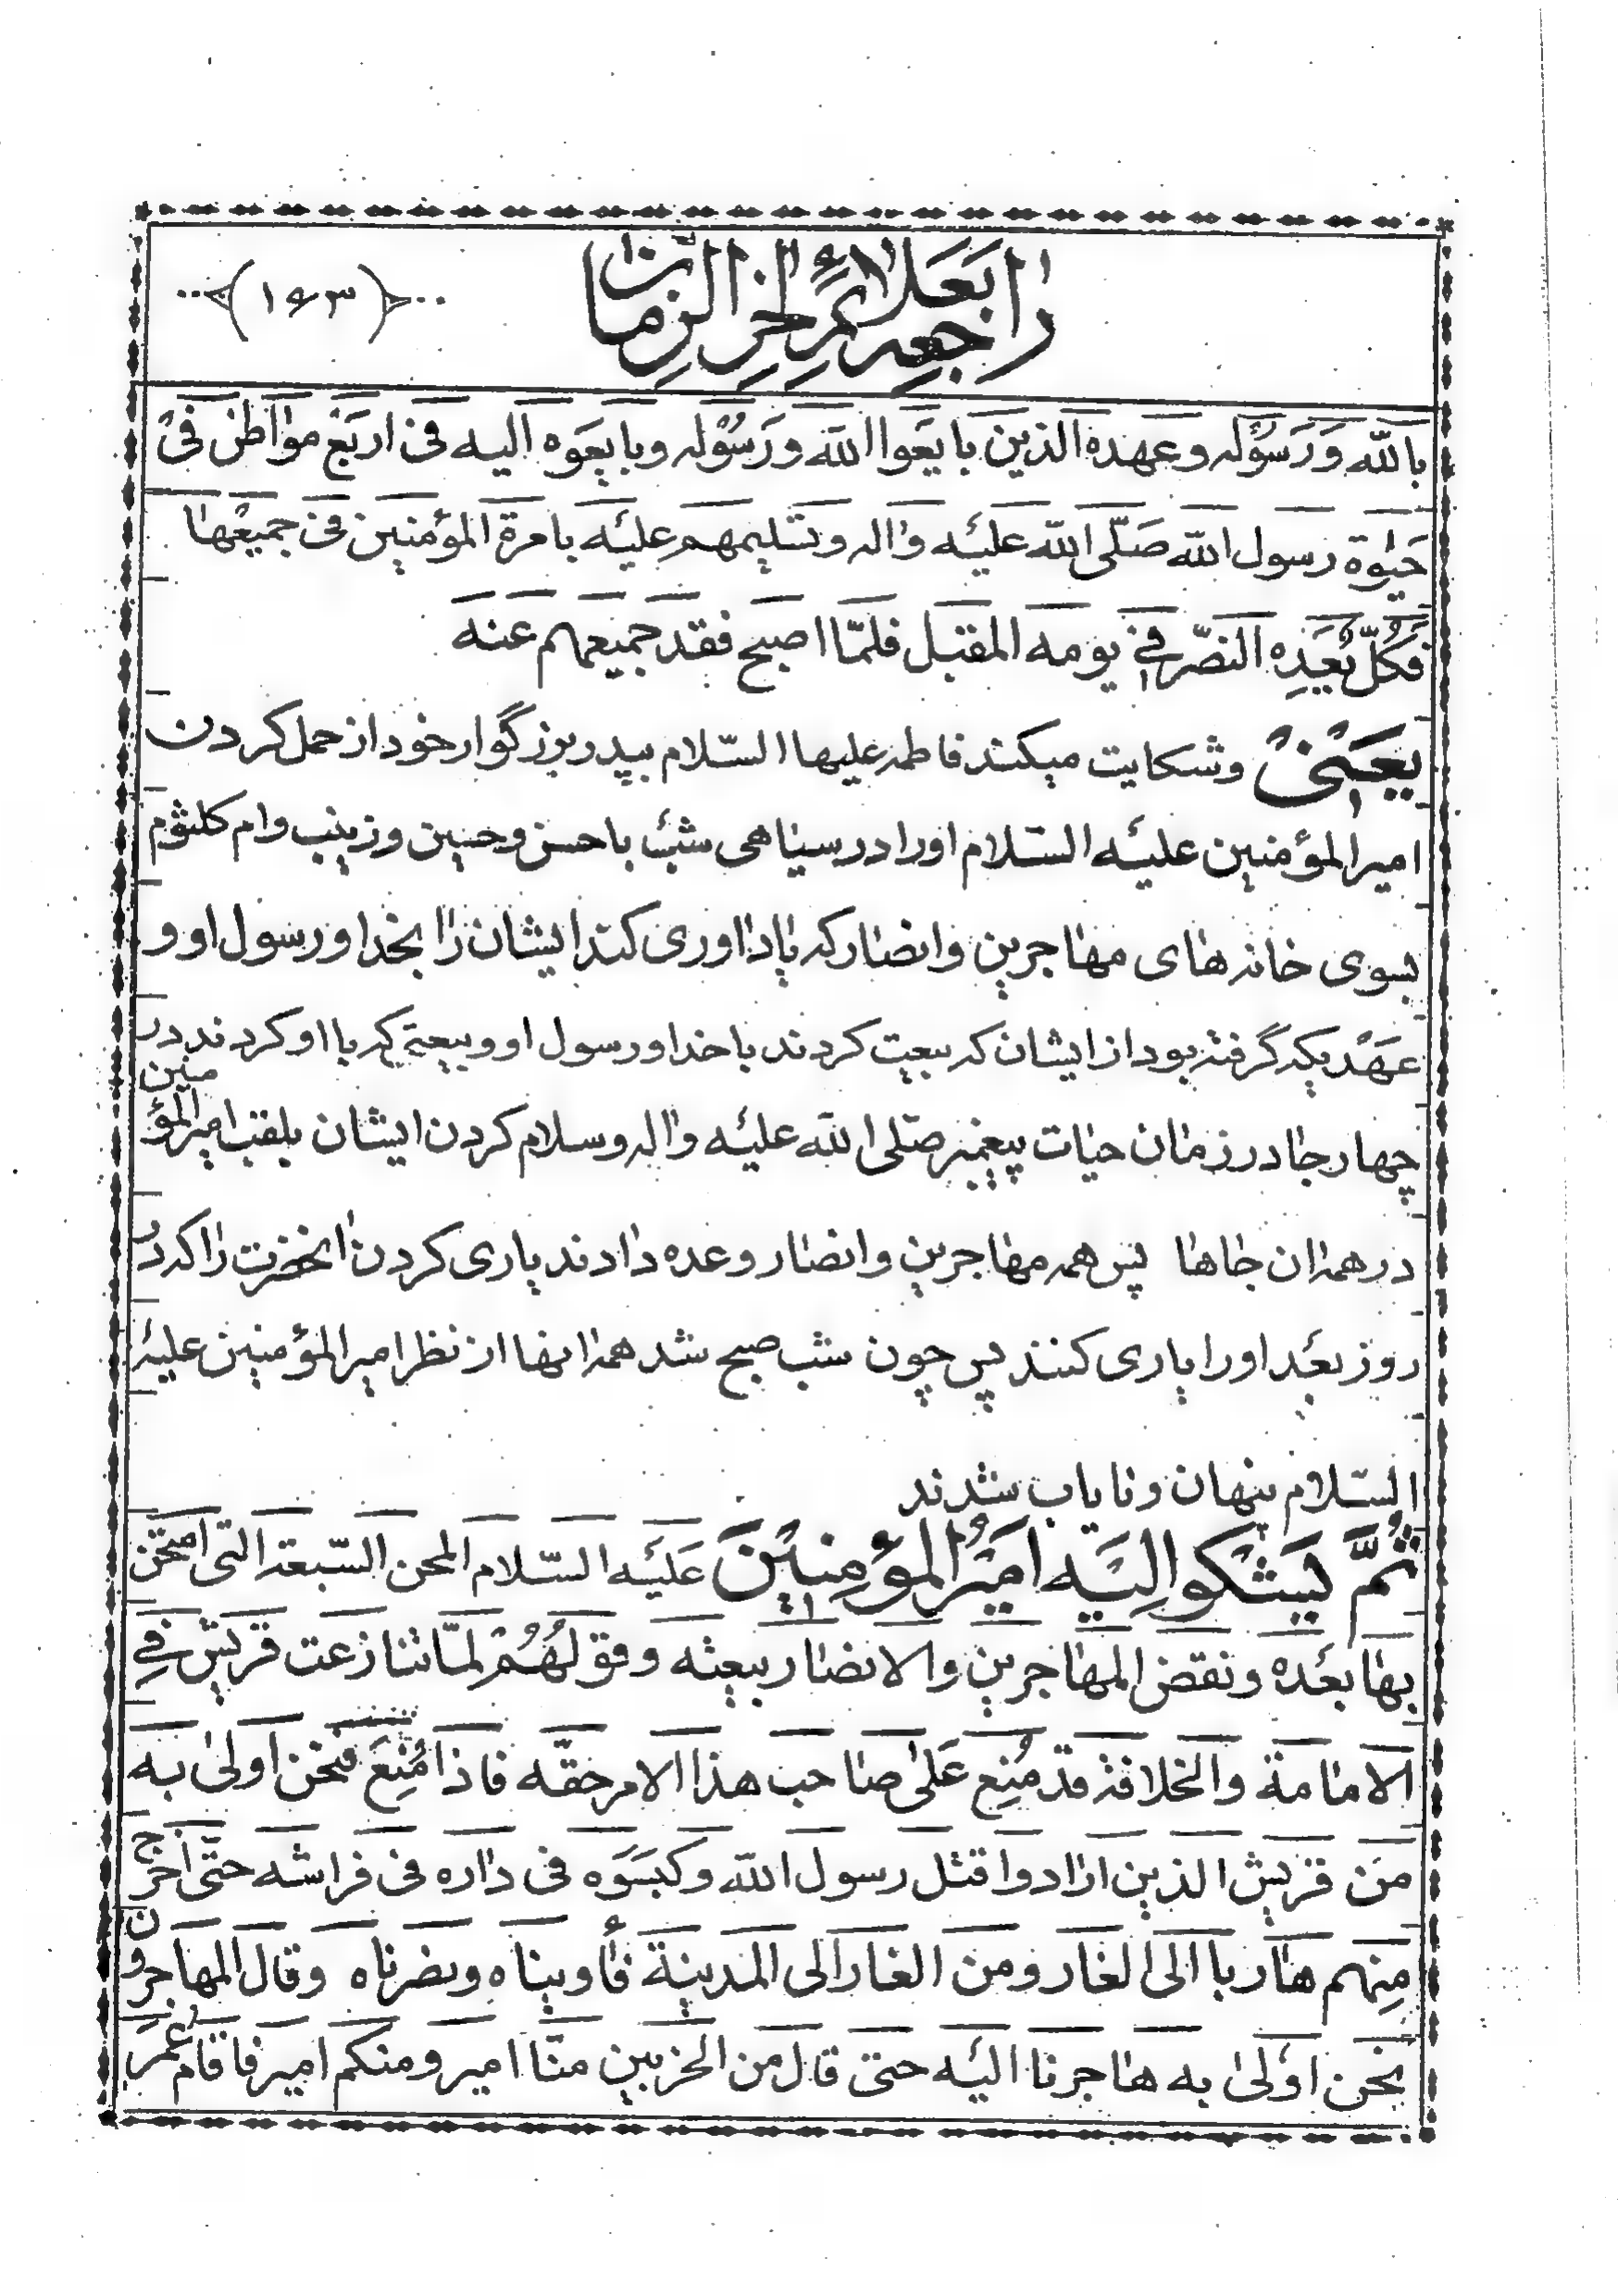 راجعه بعلائم اخر الزمان
(۱۶۳)
بالله وَرَسوُله وعهده الذين بايَعَوا الله ورَسوُله وبايعَوه اليه فى اربَع مواطن فىْ
حَيٰوة رسول الله صَلّى الله عليَه واله وتسَليمهم عليَه بامرة المؤمنين فى جميعْها
فكُلّ يُعِدِه النصّر فے يومه المقبل فلمّا اصبح فقد جميعهم عنه
يعَنىْ وشكايت ميكند فاطمه عليها السّلام بپدر بزرگوار خود از حمل كردن
امير المؤمنين عليَه السّلام اورا در سياهى شبْ باحسن وحسين وزينب وام كلثوم
بسوى خانه هاى مهاجرين وانصار كه يادااورى كند ايشان را بخدا ورسول او و
عهَدْيكه گرفته بود از ايشان كه بيعت كردند باخدا ورسول او وبيعتى كه با او كردند در
چهار جا در زمان حيات پيغمبر صلى الله عليَه واله وسلام كردن ايشان بلقب امير المؤمنين
در همه ان جاها پس همه مهاجرين وانصار وعده دادند يارى كردن انحضرت را كه در
روز بعَد اورا يارى كنند پس چون شب صبح شد همه انها از نظر امير المؤمنين عليه
السّلام پنهان وناياب شدند
ثمُّ يَشْكو اليَه اميَرُ المؤمِنيْنَ عَليَه السّلام المحن السّبعة التى امتحن
بها بعَده ونقض المهاجرين والانصار ببيعته وقولهُمُ لمّا تنازعت قريش فے
الامامة والخلافة قد مُنِع عَلى صاحب هذا الامر حقّه فاذا مُنِعَ فنحن اولى به
من قريش الذين ارادوا قتل رسول الله وكبسَوَه فى داره فى فراشه حتّى اخرج
مِنهم هاربا الى الغار ومن الغار الى المدينة فأويناه ونصرناه وقال المهاجرون
نحن اوَلى به هاجرنا اليَه حتى قال من الحزبين منّا امير ومنكم امير فاقام عُمَر